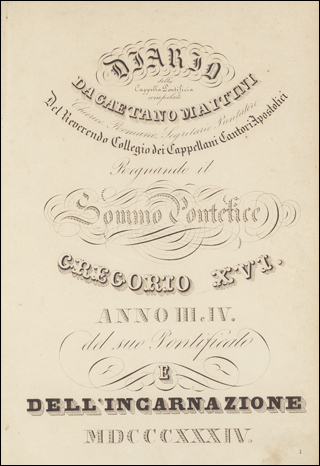 DIARIO
della
Cappella Pontificia
compilato
DA GAETANO MATTINI
Cherico Romano, Segretario Puntatore
Del Reverendo Collegio dei Cappellani Cantori Apostolici
Regnando il
Sommo Pontefice
GREGORIO XVI.
ANNO III e IV.
del suo Pontificato
E
DELL'INCARNAZIONE
MDCCCXXXIV.
1